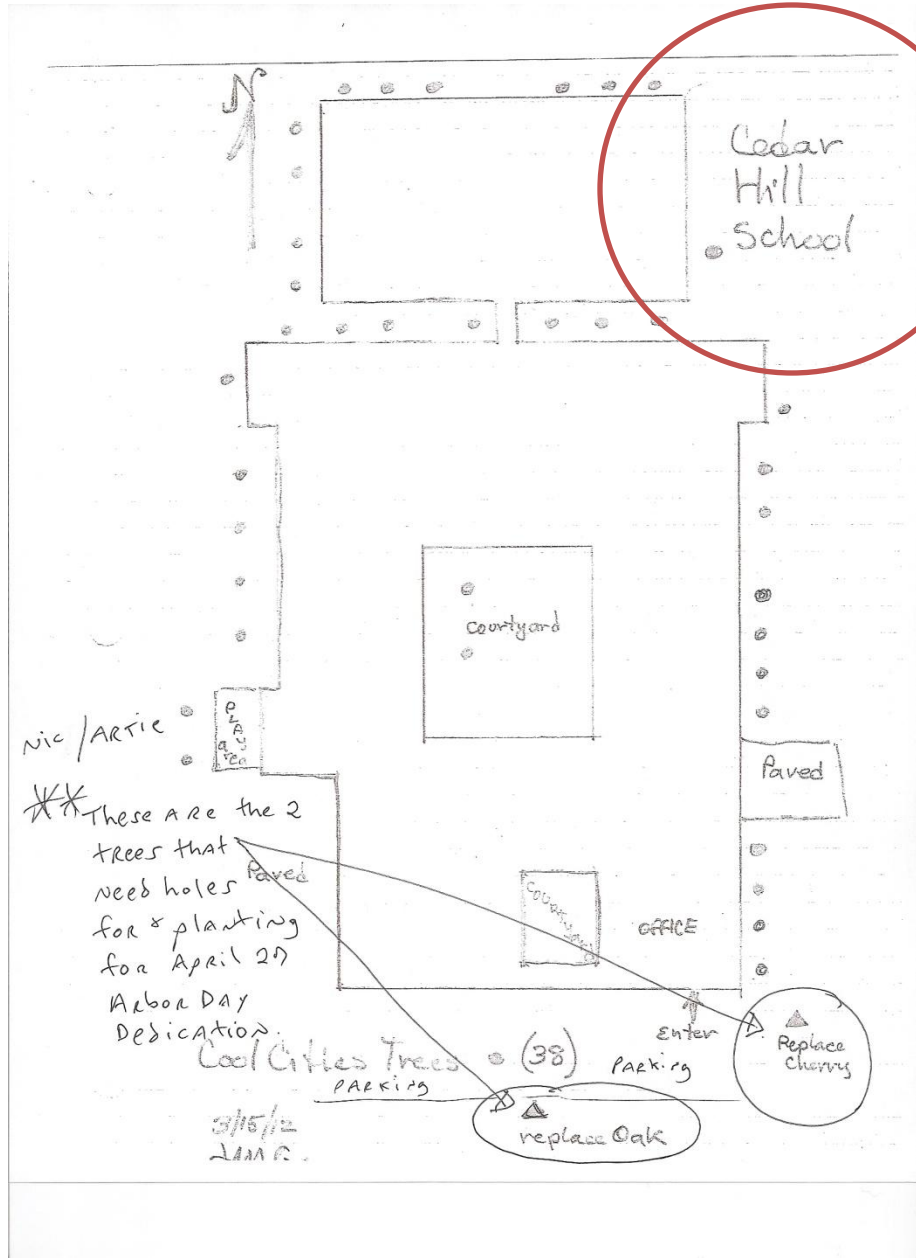 N
Cedar
Hill
School
courtyard
Nic / ARTIE
PLAY
area
Paved
** These ARe the 2
tRees that
Need holes
for & planting
for April 27
ArboR DAY
Dedication.
Paved
COURTYARD
OFFICE
Enter
Replace
Cherry
Cool Cities Trees (38)
PARKing
PARKing
replace Oak
3/15/12